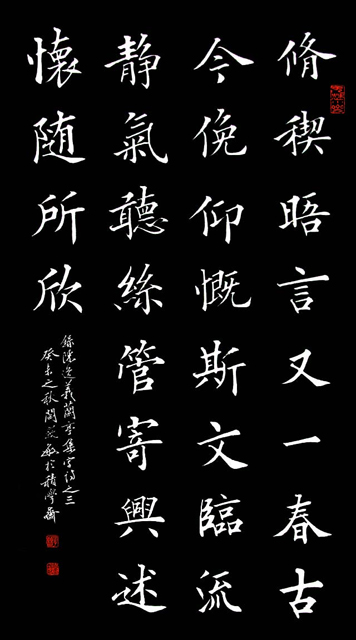 脩稧晤言又一春古
今俛仰慨斯文臨流
靜氣聽絲管寄興述
懷随所欣
蘭亭集字詩之三
癸未之秋 於積學齋